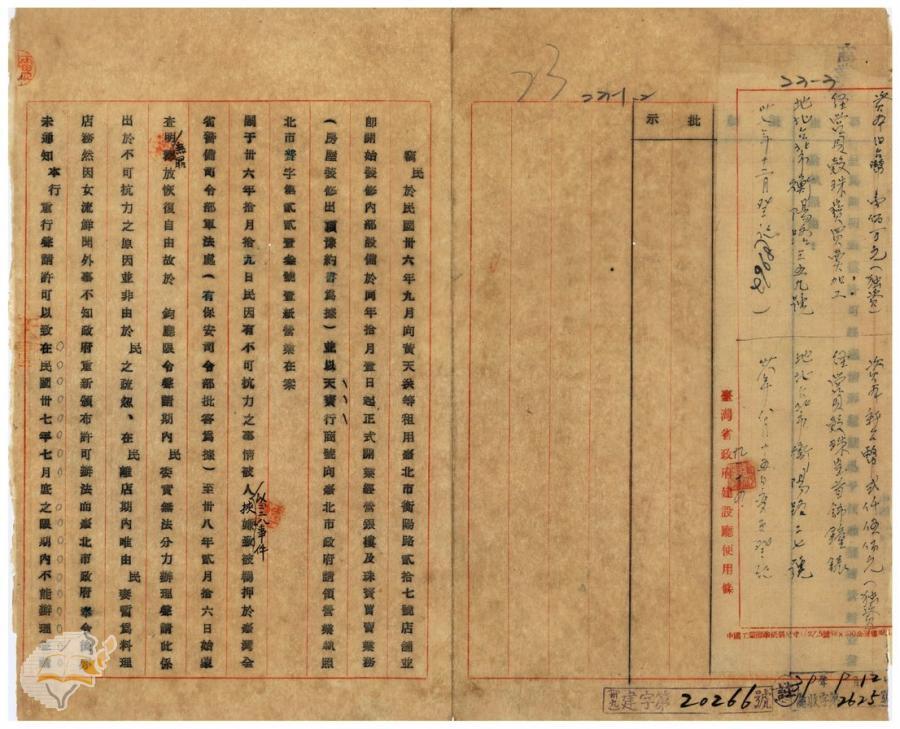 資本旧台幣 壹佰万元(独資)
經營貝殼珠寶買賣加工
地址台北市衡陽路三五九號
卅六年十二月登記
資本新台幣 貳仟伍佰元(独資)
地址台北市衡陽路二七號
22-3
22-1-2
23
臺灣省政府建設廳使用條
批示
竊民於民國卅六年九月向黃天送等租用臺北市衡陽路貳拾七號店舖並
即開始裝修內部設備於同年拾月壹日起正式開業經營銀樓及珠寶買賣業務
(房屋裝修出頂豫約書爲據)並以天寶行商號向臺北市政府請領營業執照
北市營字集貳貳壹叁號壹紙營業在案
嗣于卅六年拾月拾九日民因有不可抗力之事情被人挾嫌致被覊押於臺灣全
以二二八事件
省警備司令部軍法處(有保安司令部批答爲據)至卅八年貳月拾六日始蒙
查明釋放恢復自由故於 鈞廳限令聲請期內 民委實無法分力辦理聲請此係
無罪
出於不可抗力之原因並非由於 民之疏忽、在民離店期內唯由 民妻暫爲料理
店務然因女流鮮聞外事不知政府重新頒布許可辦法而臺北市政府奉令
未通知 本行 重行聲請許可以致在民國卅七年七月底之限期內不能辦理
卅九建字第20266號
9 12
2625